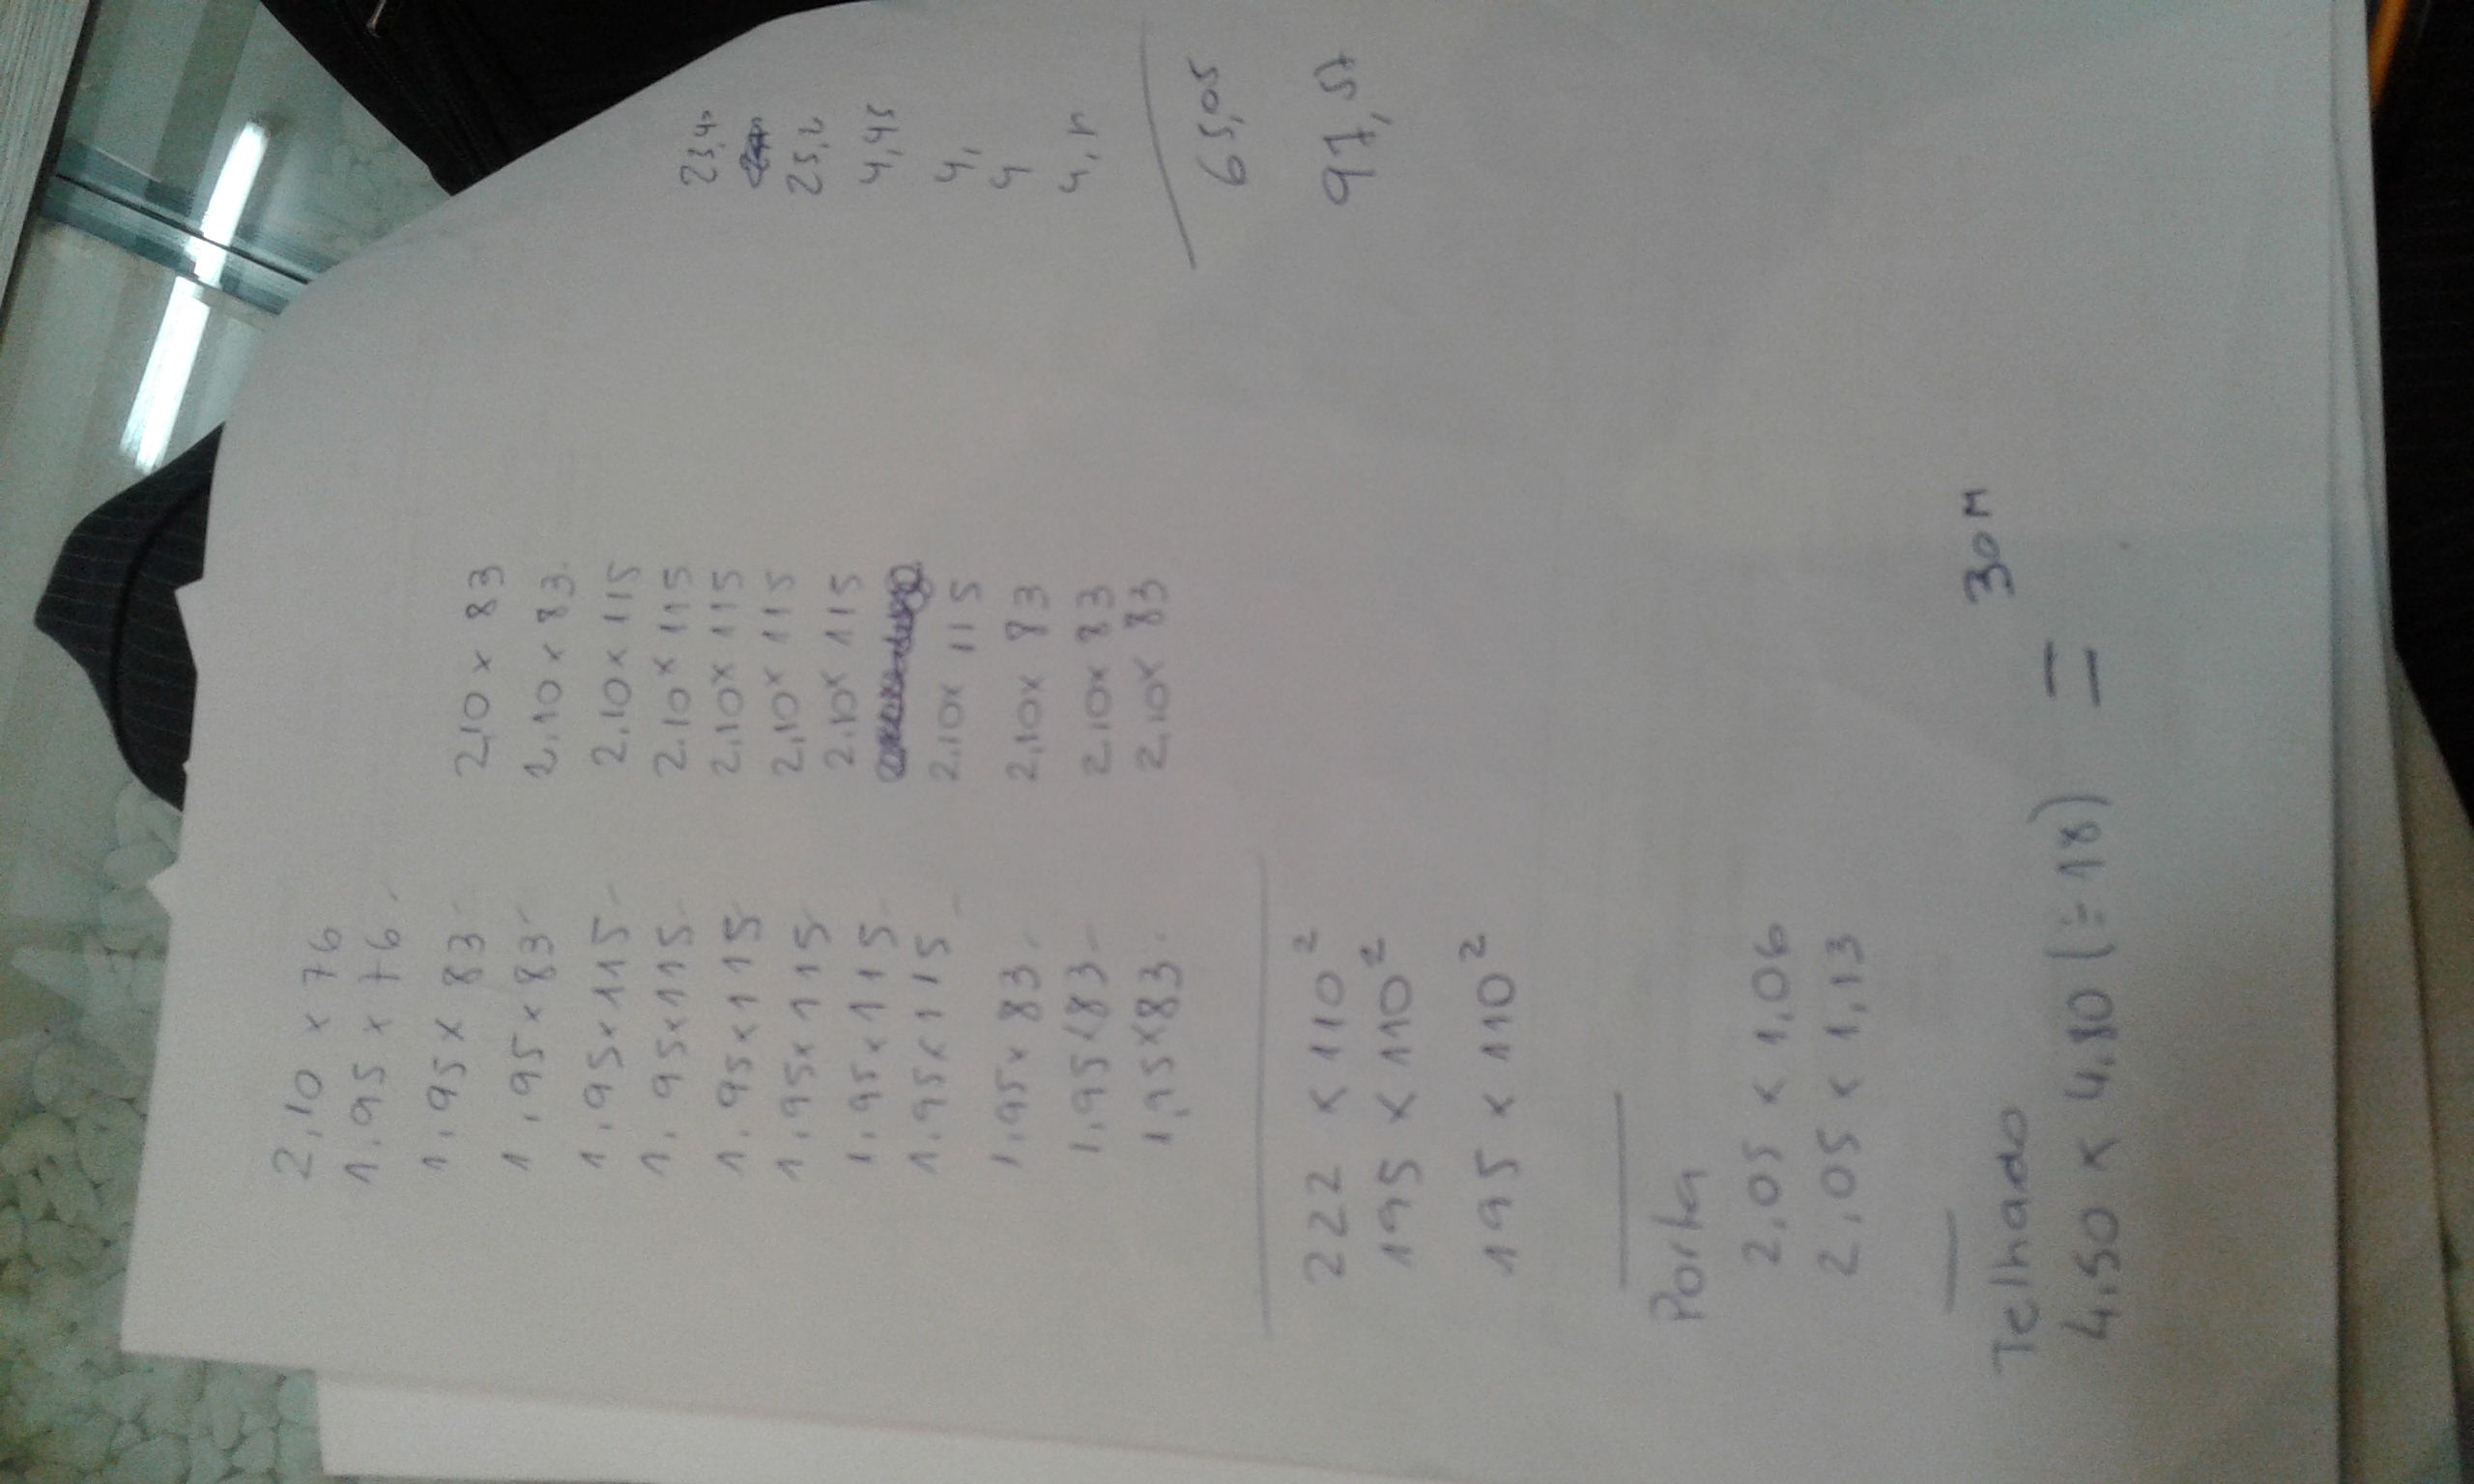 2,10 x 76
1.95 x 76.
1,95 x 83-
1,95 x 83-
1,95x115-
1,95x115-
1,95x115
1,95x115
1,95x115-
1,95x115 -
1,95x 83-
1,95x83-
1,95x83.
2,10 x 83
2,10 x 83.
2,10 x 115
2,10 x 115
2,10x 115
2,10x 115
2,10x 115
2,10x 115
2,10x 83
2,10x 83
2,10x 83
25,2
4,45
4,
4
65,05
97,57
222 x 110²
195 x 110²
195 x 110²
Porta
2,05 x 1,06
2,05 x 1,13
Telhado
4,50 x 4,80 (÷18) = 30M